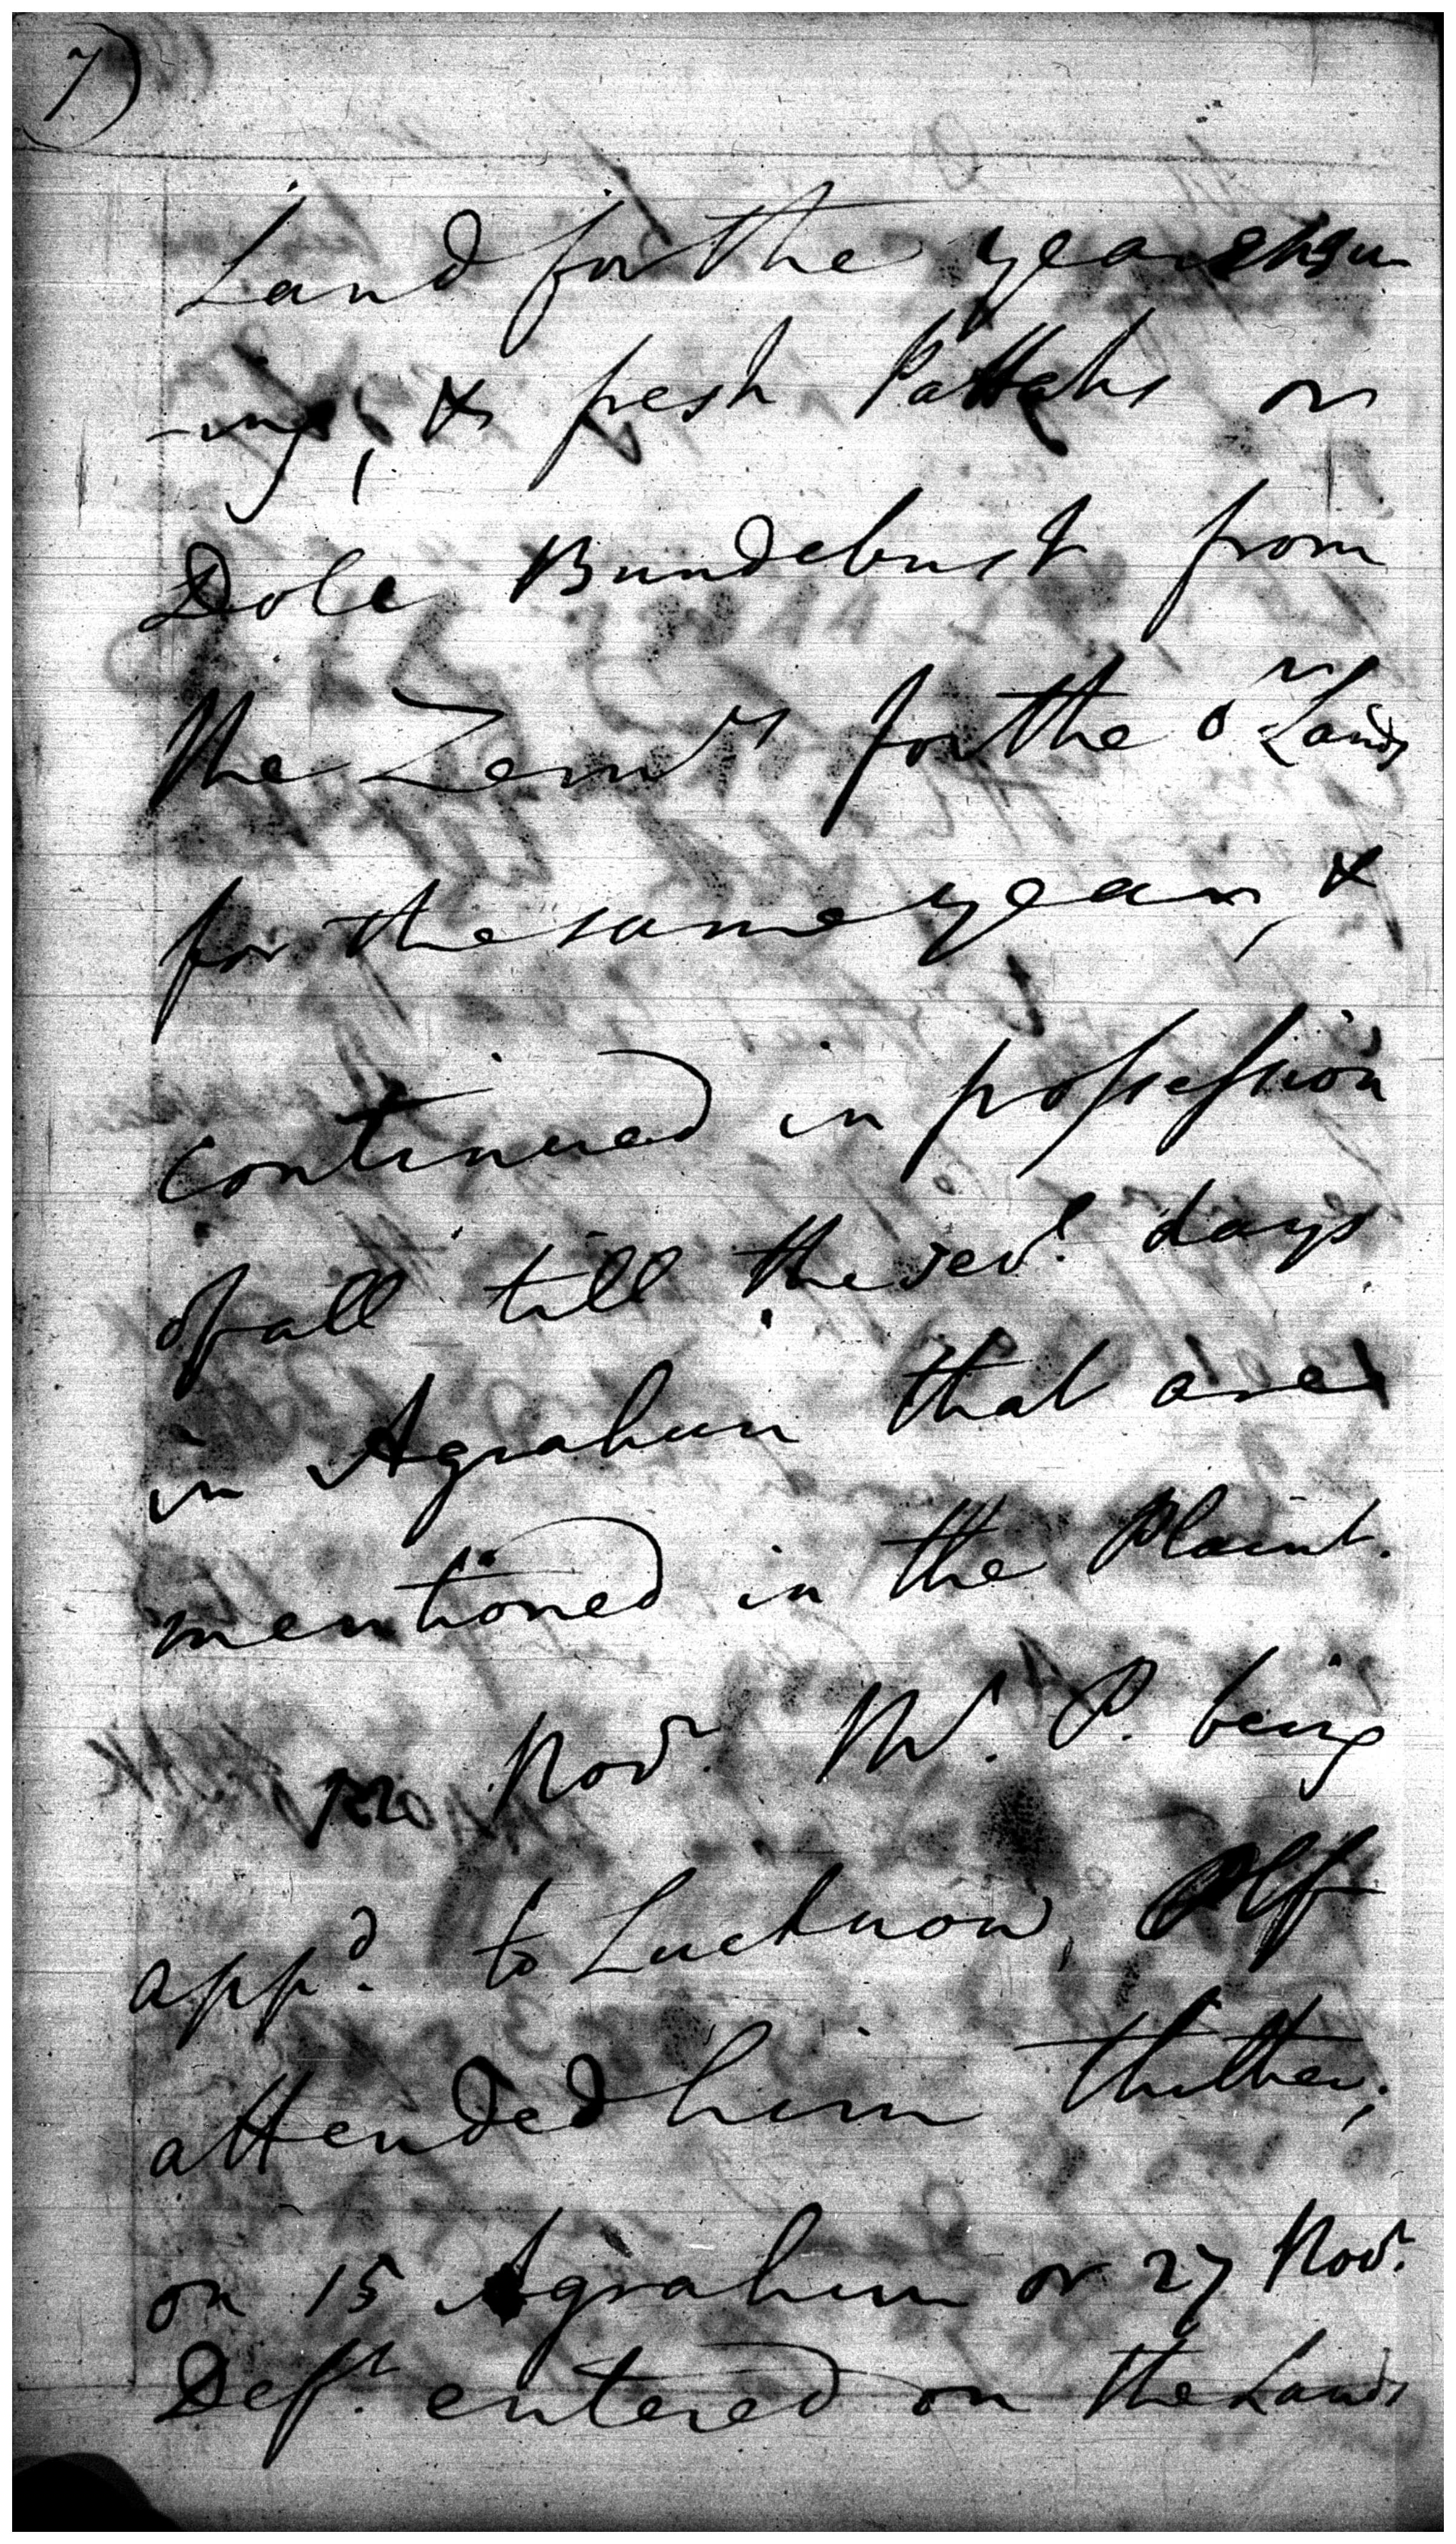 7)
Land for the year ensu
-ing, & fresh Pattahs or
Dole Bundebust from
the Zemrs for the or Lands
for the same year, &
continued in possession
of all till the sevl. days
in Agrahun that are
mentioned in the Plaint.
Novr. W. P. being
appd. to Lucknow, Plff
attended him thither,
on 15 Agrahun or 27 Novr.
Deft. entered on the Lands